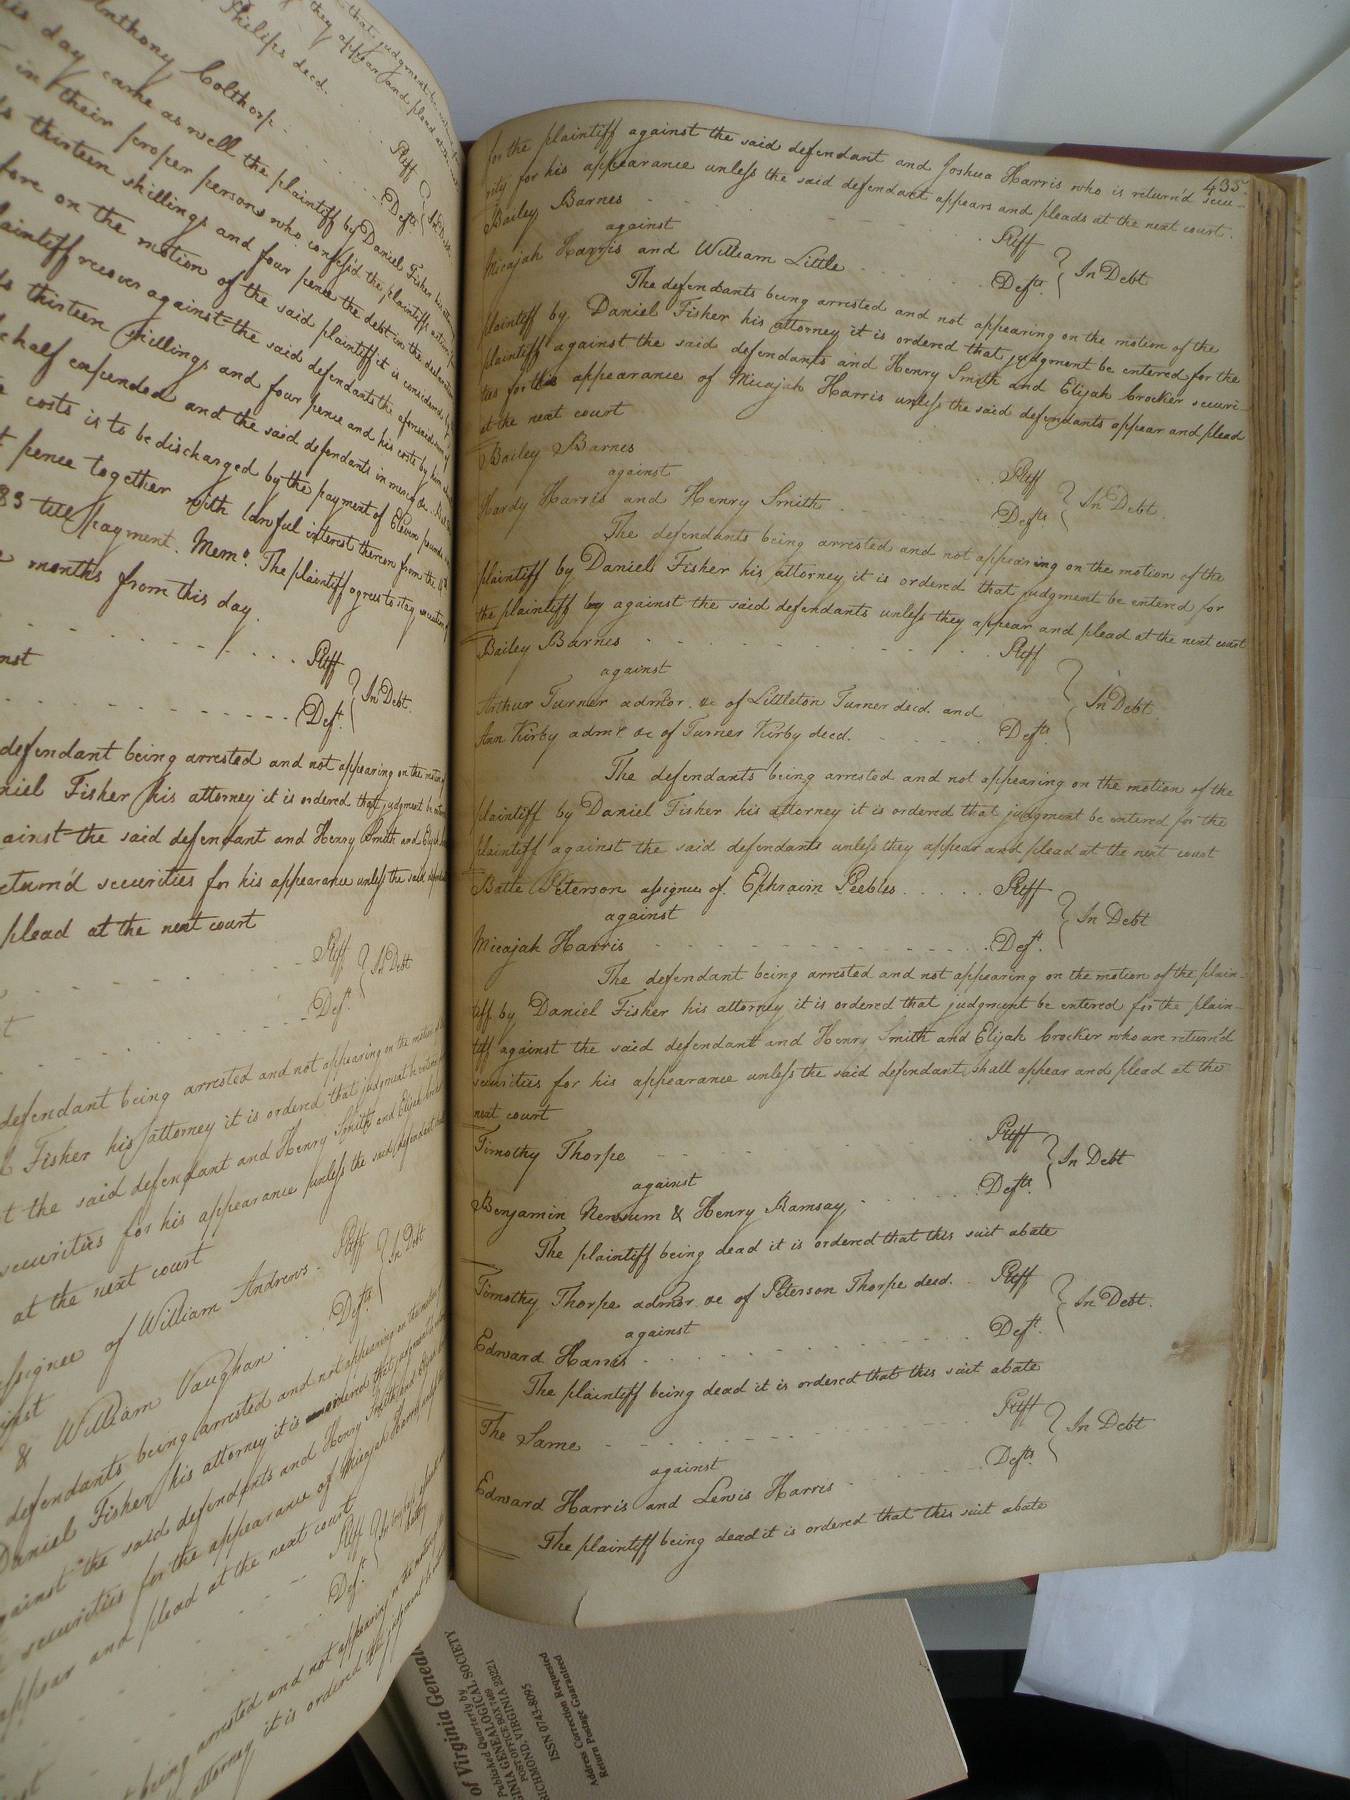 that judgment be entered
they appear and plead at the
Philips decd.
Anthony Colthorp Ptiff
Defts. In Debt
day came as well the plaintiff by Daniel Fisher his attorney
in their proper persons who confess'd the plaintiffs action for
thirteen shillings and four pence the debt in the declaration
fore on the motion of the said plaintiff it is considered by
laintiff recover against the said defendants the aforesaid sum of
thirteen shillings and four pence and his costs by him about
half expended and the said defendants in mercy &c.
costs is to be discharged by the payment of Eleven pounds
pence together with lawful interest thereon from the
83 till payment. Memo. The plaintiff agrees to stay execution
months from this day.
Ptiff
nst In Debt.
Deft.
defendant being arrested and not appearing on the motion
niel Fisher his attorney it is ordered that judgment be entered
ainst the said defendant and Henry Smith and Elijah
eturn'd securities for his appearance unless the said
plead at the next court
Ptiff
In Debt
Deft.
defendant being arrested and not appearing on the motion
Fisher his attorney it is ordered that judgment be entered
t the said defendant and Henry Smith and Elijah
securities for his appearance unless the said defendant
at the next court
ssignee of William Andrews Ptiff
inst In Debt
& William Vaughan Defts.
defendants being arrested and not appearing on the motion
Daniel Fisher his attorney it is ordered that judgment
gainst the said defendants and Henry Smith and
securities for the appearance of Micajah Harris
appear and plead at the next court
Ptiff
Deft.
being arrested and not appearing on the motion
attorney it is ordered that judgment be
435
for the plaintiff against the said defendant and Joshua Harris who is return'd secu-
rity for his appearance unless the said defendant appears and pleads at the next court.
Bailey Barnes Ptiff
against In Debt
Micajah Harris and William Little Defts.
The defendants being arrested and not appearing on the motion of the
plaintiff by Daniel Fisher his attorney it is ordered that judgment be entered for the
plaintiff against the said defendants and Henry Smith and Elijah Crocker securi-
ties for the appearance of Micajah Harris unless the said defendants appear and plead
at the next court
Bailey Barnes Ptiff
against In Debt.
Hardy Harris and Henry Smith Defts.
The defendants being arrested and not appearing on the motion of the
plaintiff by Daniel Fisher his attorney it is ordered that judgment be entered for
the plaintiff by against the said defendants unless they appear and plead at the next court
Bailey Barnes Ptiff
against In Debt
Arthur Turner admor. &c of Littleton Turner decd. and
Ann Kirby admr. &c of Turner Kirby decd. Defts.
The defendants being arrested and not appearing on the motion of the
plaintiff by Daniel Fisher his attorney it is ordered that judgment be entered for the
plaintiff against the said defendants unless they appear and plead at the next court
Batte Peterson assignee of Ephraim Peebles Ptiff
against In Debt
Micajah Harris Deft.
The defendant being arrested and not appearing on the motion of the plain-
tiff by Daniel Fisher his attorney it is ordered that judgment be entered for the plain-
tiff against the said defendant and Henry Smith and Elijah Crocker who are return'd
securities for his appearance unless the said defendant shall appear and plead at the
next court
Timothy Thorpe Ptiff
against In Debt
Benjamin Newsum & Henry Ramsay Defts.
The plaintiff being dead it is ordered that this suit abate
Timothy Thorpe admor. &c of Peterson Thorpe decd. Ptiff
against In Debt.
Edward Harris Deft.
The plaintiff being dead it is ordered that this suit abate
The Same Ptiff
against In Debt
Edward Harris and Lewis Harris Defts.
The plaintiff being dead it is ordered that this suit abate
of Virginia Geneal
Published Quarterly by
GINIA GENEALOGICAL SOCIETY
POST OFFICE BOX 7469
RICHMOND, VIRGINIA 23221
ISSN 0743-8095
Address Correction Requested
Return Postage Guaranteed